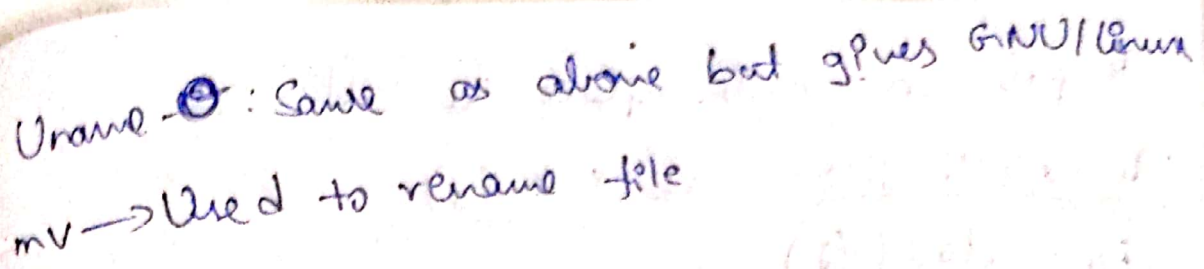 Uname -O : Same as above but gives GNU/Linux
mv → Used to rename file